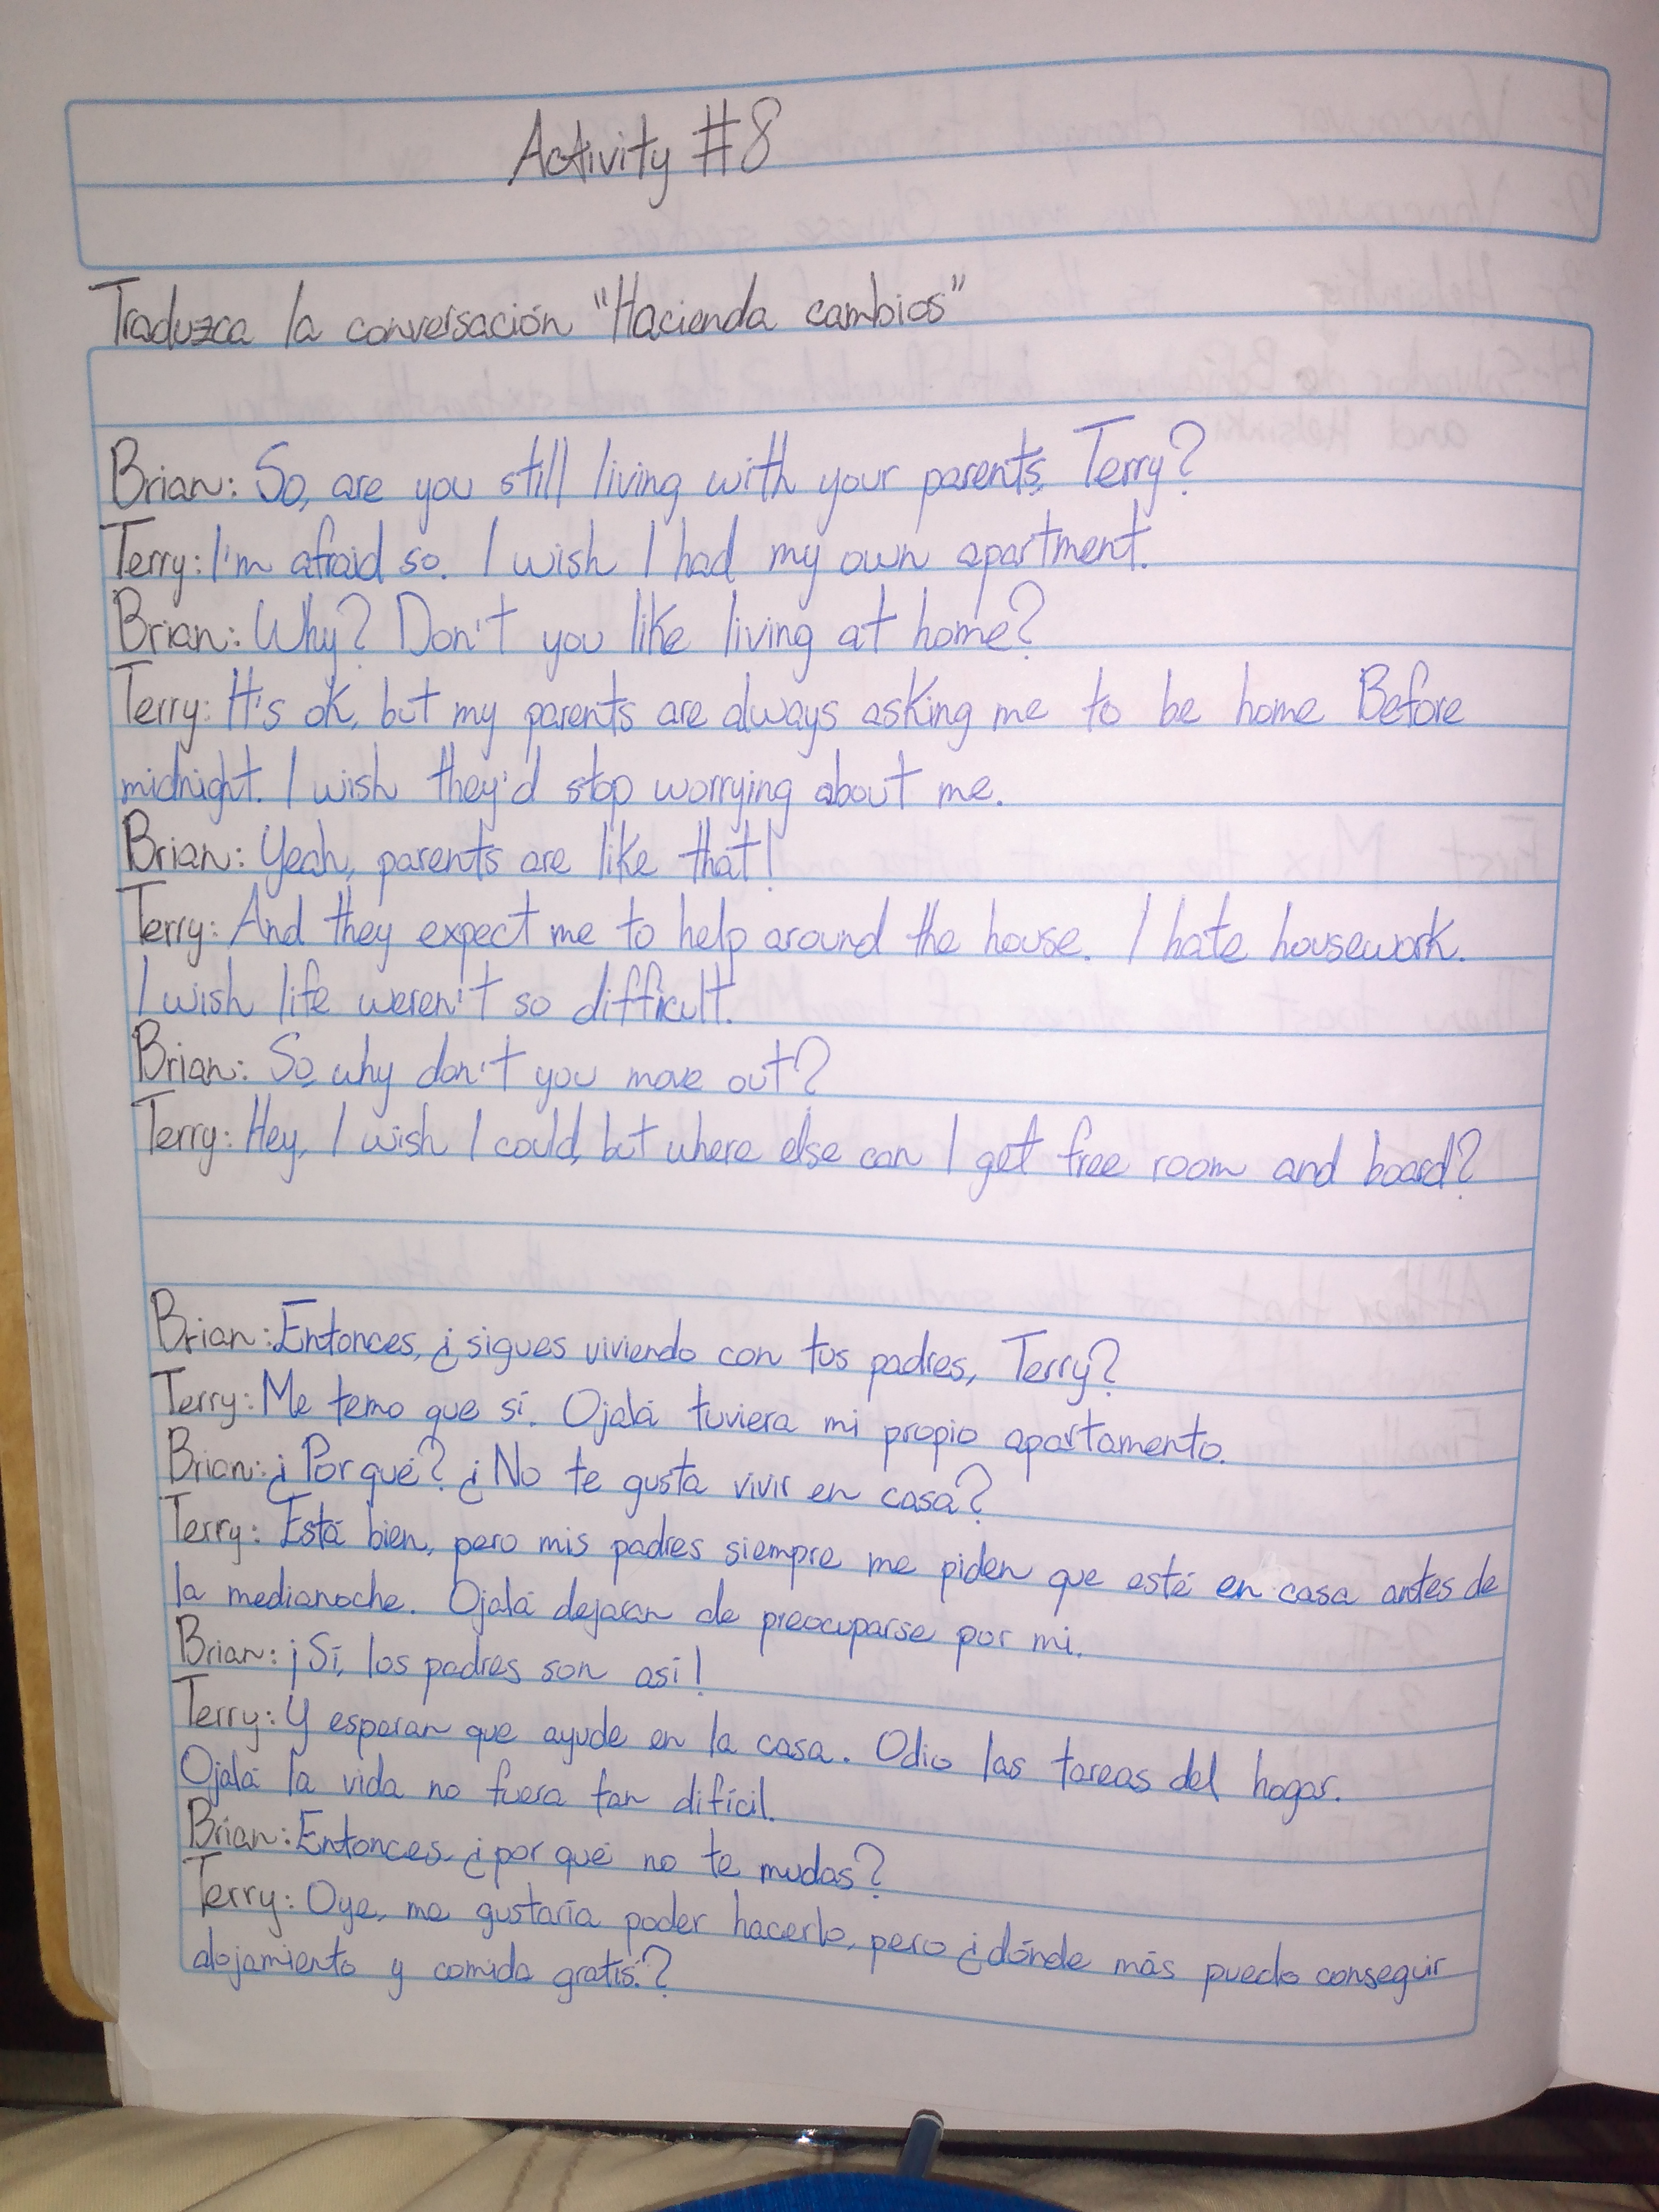 Activity #8
Traduzca la conversación "Hacienda cambios"
Brian: So, are you still living with your parents, Terry?
Terry: I'm afraid so. I wish I had my own apartment.
Brian: Why? Don't you like living at home?
Terry: It's ok, but my parents are always asking me to be home Before
midnight. I wish they'd stop worrying about me.
Brian: Yeah, parents are like that!
Terry: And they expect me to help around the house. I hate housework.
I wish life weren't so difficult.
Brian: So why don't you move out?
Terry: Hey, I wish I could, but where else can I get free room and board?
Brian: Entonces, ¿sigues viviendo con tus padres, Terry?
Terry: Me temo que sí. Ojalá tuviera mi propio apartamento.
Brian: ¿Por qué? ¿No te gusta vivir en casa?
Terry: Está bien, pero mis padres siempre me piden que esté en casa antes de
la medianoche. Ojalá dejaran de preocuparse por mi.
Brian: ¡Sí, los padres son así!
Terry: Y esperan que ayude en la casa. Odio las tareas del hogar.
Ojalá la vida no fuera tan difícil.
Brian: Entonces, ¿por qué no te mudas?
Terry: Oye, me gustaría poder hacerlo, pero ¿dónde más puedo conseguir
alojamiento y comida gratis?